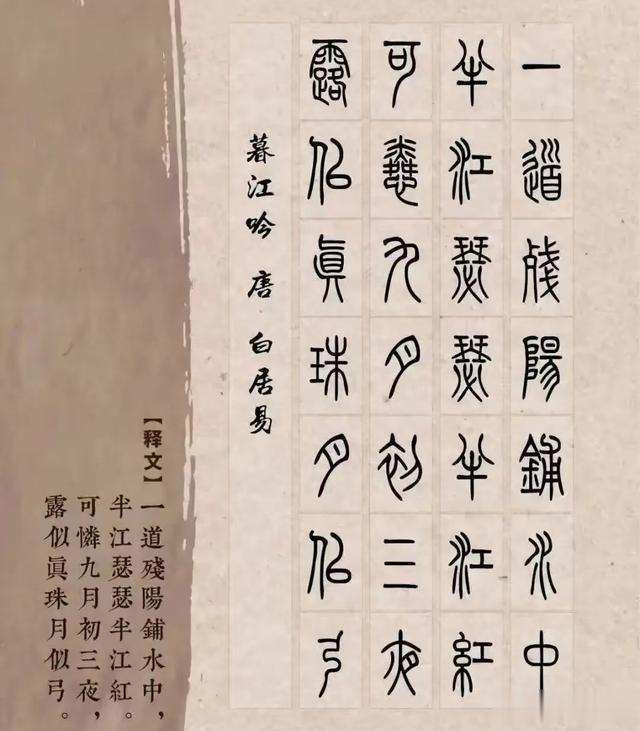 一道殘陽鋪水中
半江瑟瑟半江紅
可憐九月初三夜
露似眞珠月似弓
暮江吟 唐 白居易
【释文】一道殘陽鋪水中，
半江瑟瑟半江紅。
可憐九月初三夜，
露似眞珠月似弓。